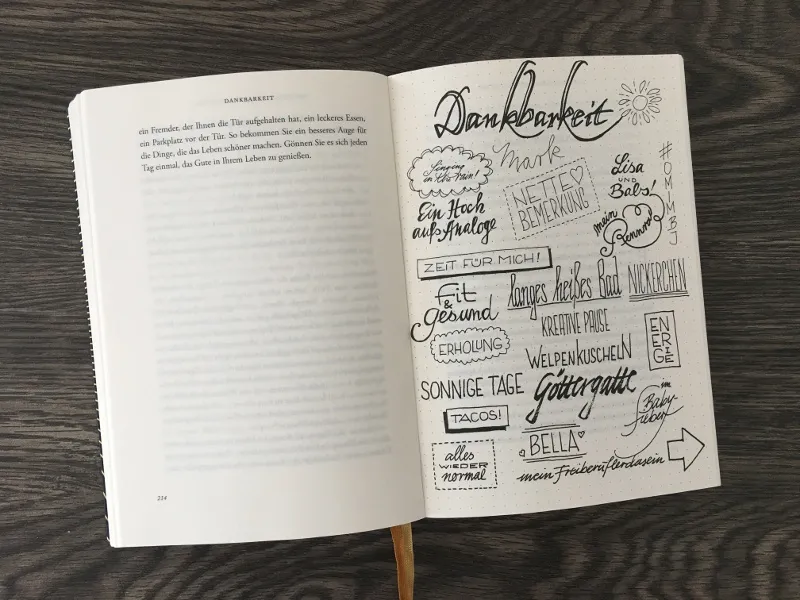 DANKBARKEIT
ein Fremder, der Ihnen die Tür aufgehalten hat, ein leckeres Essen,
ein Parkplatz vor der Tür. So bekommen Sie ein besseres Auge für
die Dinge, die das Leben schöner machen. Gönnen Sie es sich jeden
Tag einmal, das Gute in Ihrem Leben zu genießen.
224
Dankbarkeit
Mark
Singing
in the rain!
NETTE
BEMERKUNG
Lisa
UND
Babs!
#OMMBJ
Ein Hoch
aufs Analoge
mein
Rennrad
ZEIT FÜR MICH!
Fit
&
gesund
langes heißes Bad
NICKERCHEN
KREATIVE PAUSE
ERHOLUNG
WELPENKUSCHELN
EN
ER
GIE
SONNIGE TAGE
Göttergatte
im
Baby-
fieber
TACOS!
BELLA
alles
WIEDER
normal
mein Freiberuflerdasein